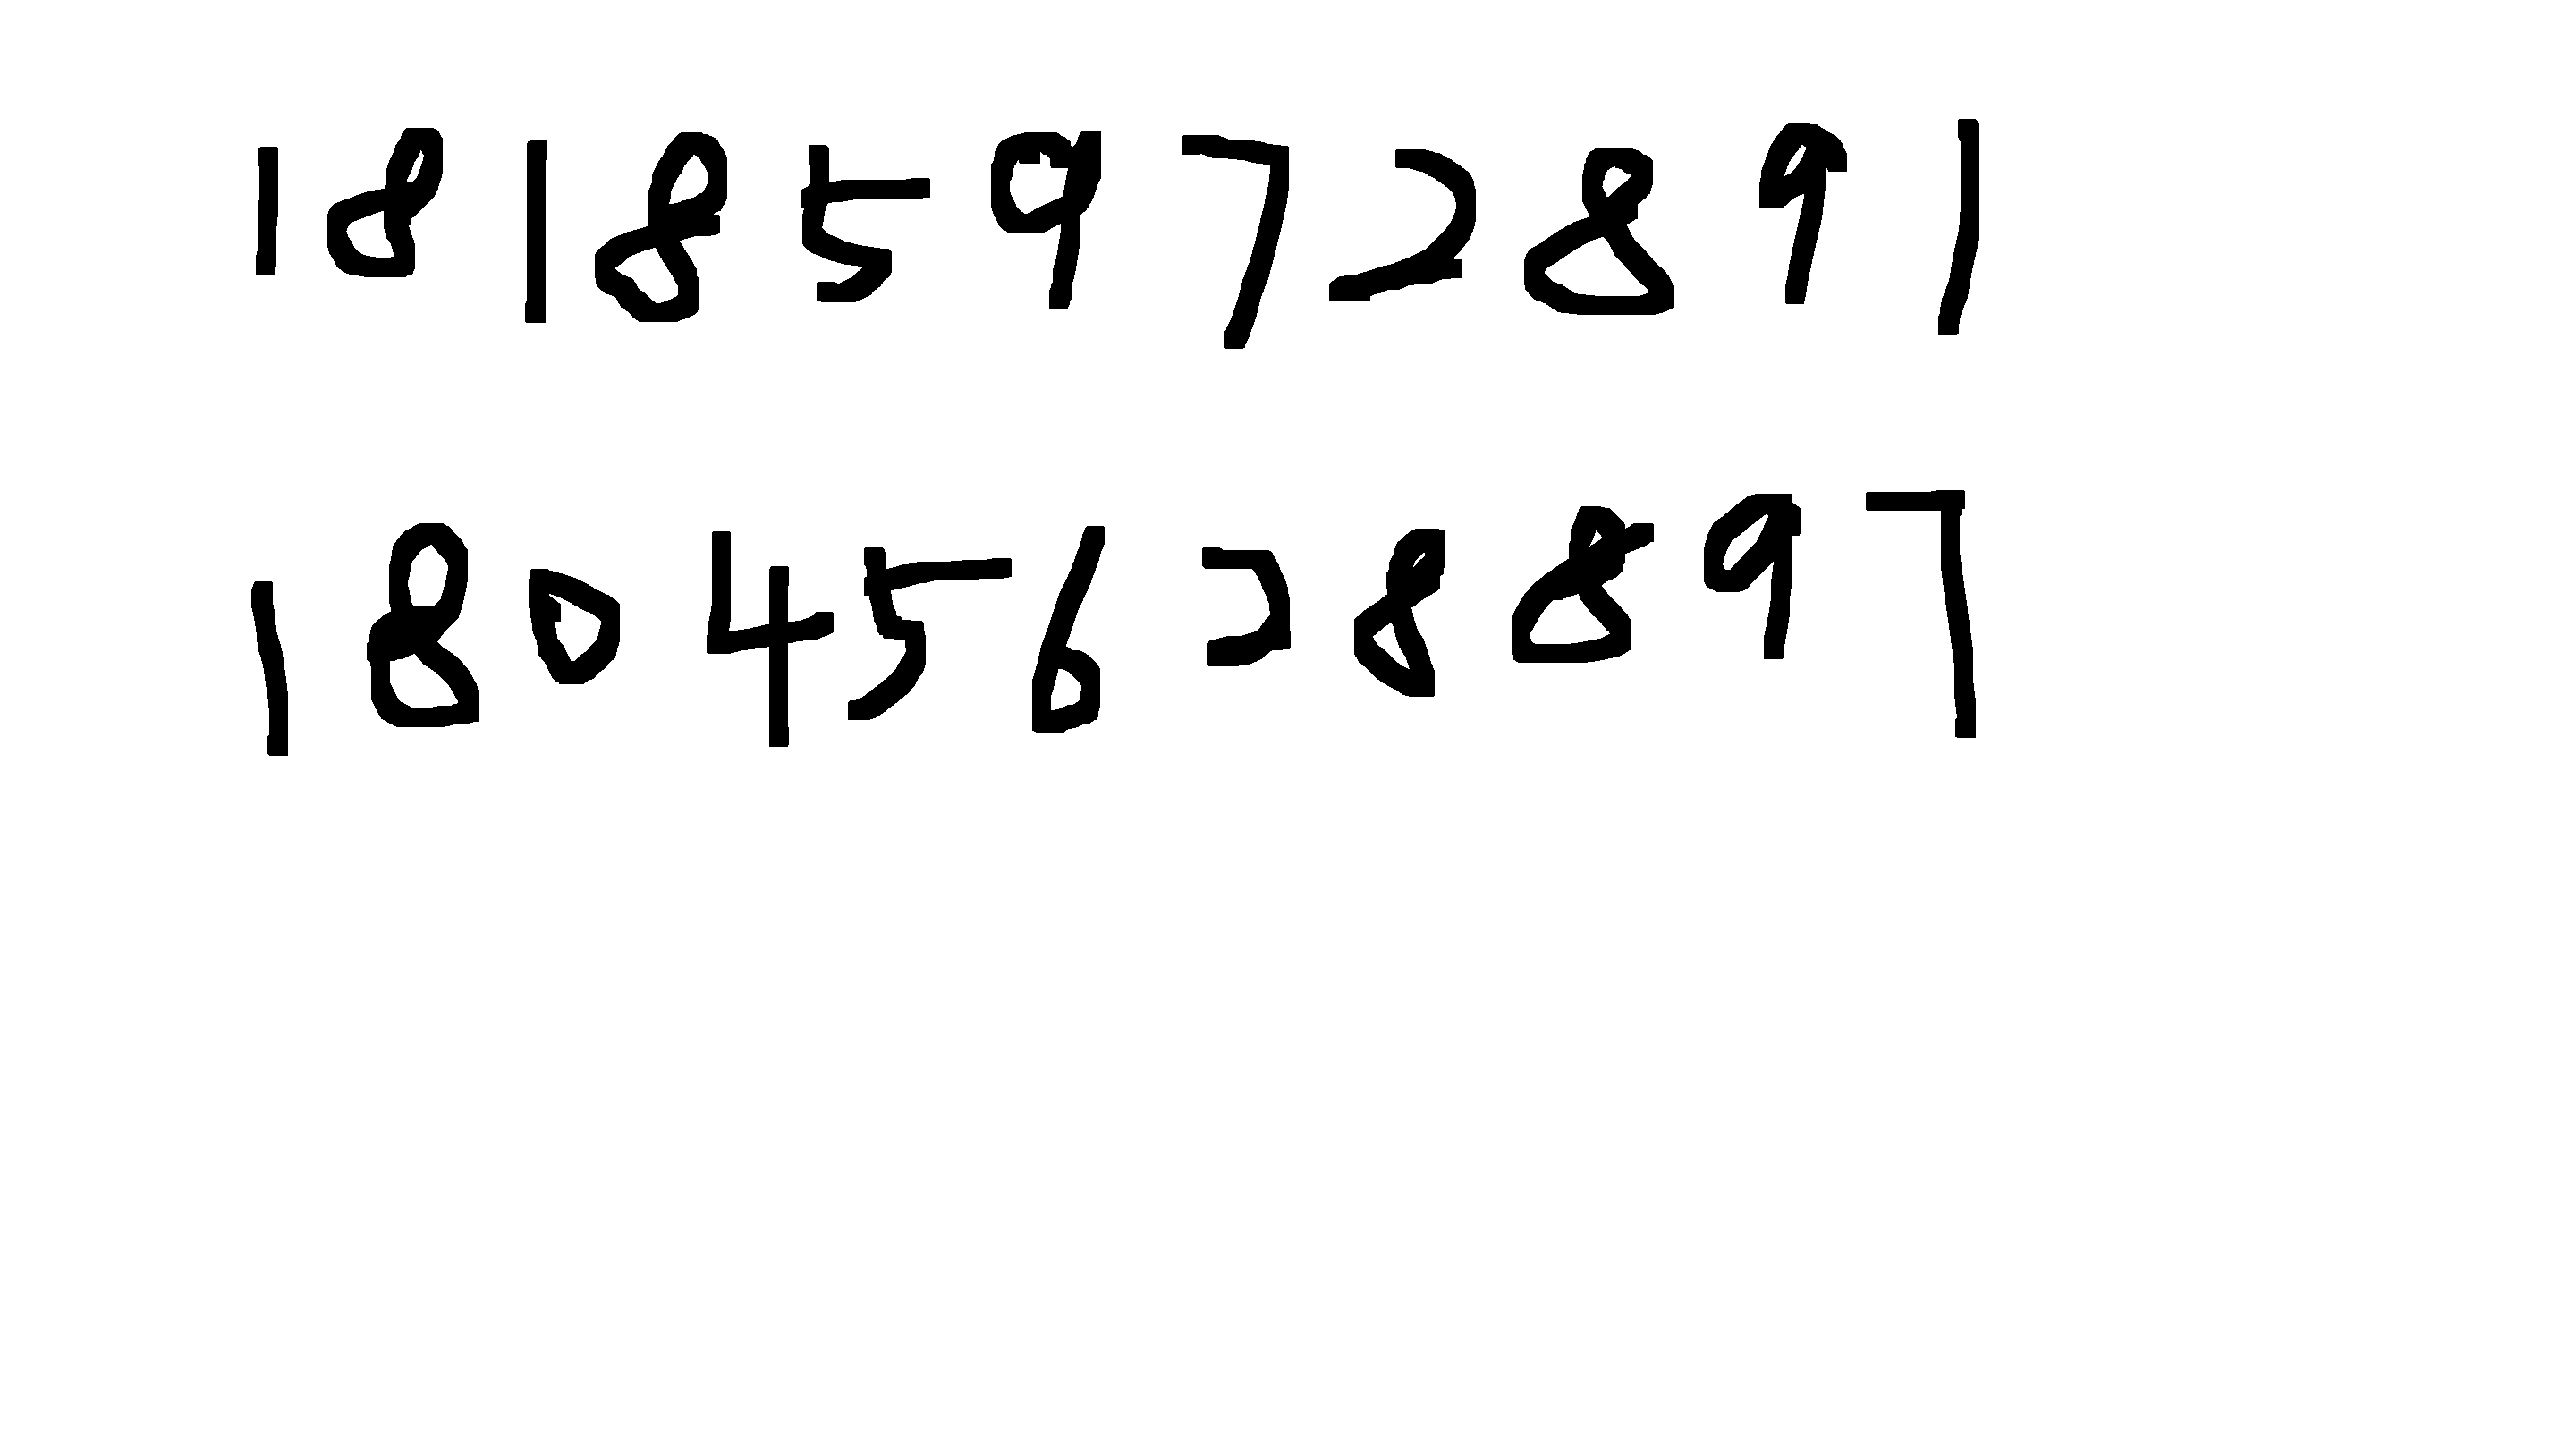 18185972891
18045628897